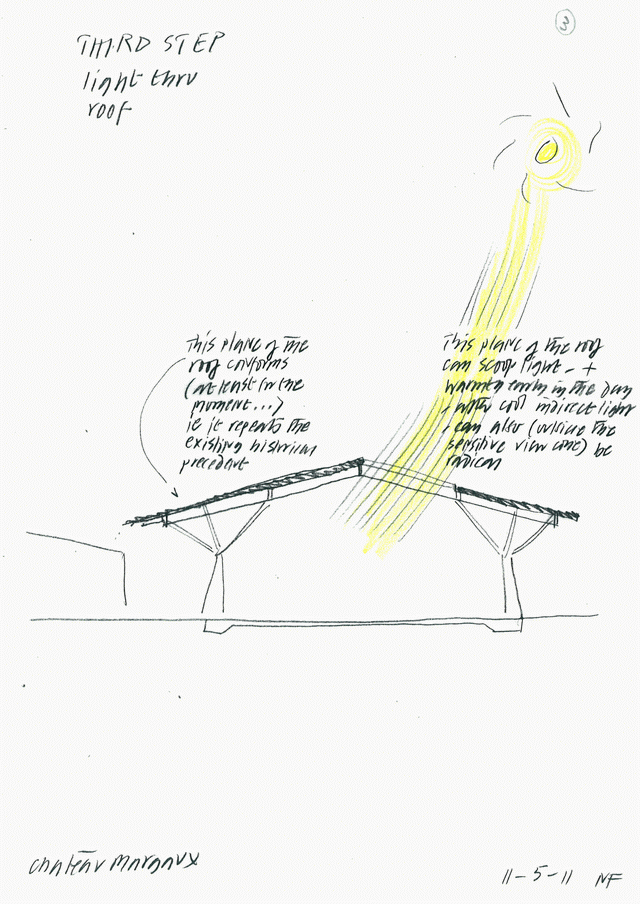 3
THIRD STEP
light thru
roof
This plane of the
roof conforms
(at least for the
moment...)
ie it repeats the
existing historical
precedent
This plane of the roof
can scoop light - +
warmth early in the day
, with cool indirect light
, can also (outside the
sensitive view cone) be
radical
chateau margaux
11-5-11 NF